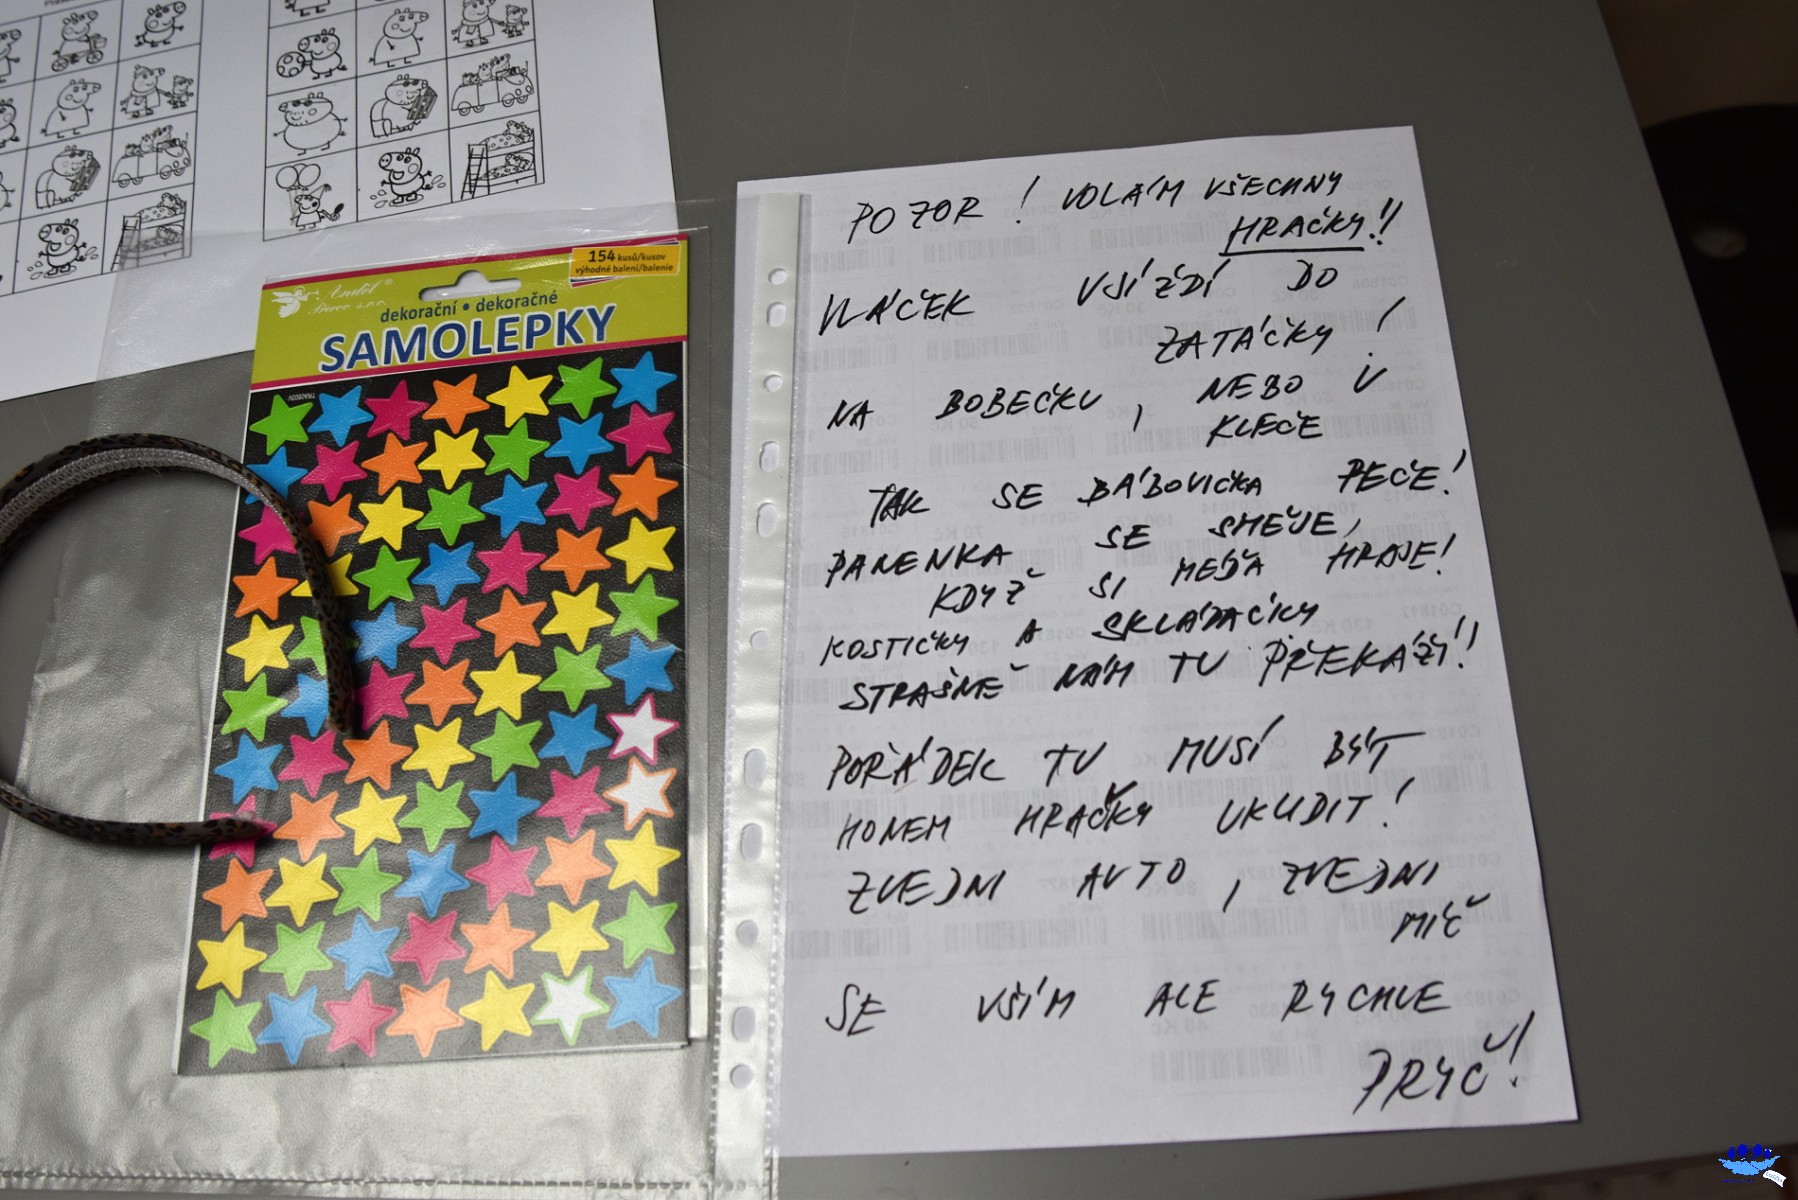 154 kusů/kusov
výhodné balení/balenie
Anděl
Přerov s.r.o.
dekorační • dekoračné
SAMOLEPKY
POZOR! VOLÁM VŠECHNY
HRAČKY!!
VLÁČEK VJÍŽDÍ DO
ZATÁČKY!
NA BOBEČKU, NEBO V
KLEČE
TAK SE BÁBOVIČKA PEČE!
PANENKA SE SMĚJE,
KDYŽ SI MÉĎA HRAJE!
KOSTIČKY A SKLÁDAČKY
STRAŠNĚ NÁM TU PŘEKÁŽÍ!
POŘÁDEK TU MUSÍ BÝT
HONEM HRAČKY UKLIDIT!
ZVEDNI AUTO, ZVEDNI
MÍČ
SE VŠÍM ALE RYCHLE
PRYČ!